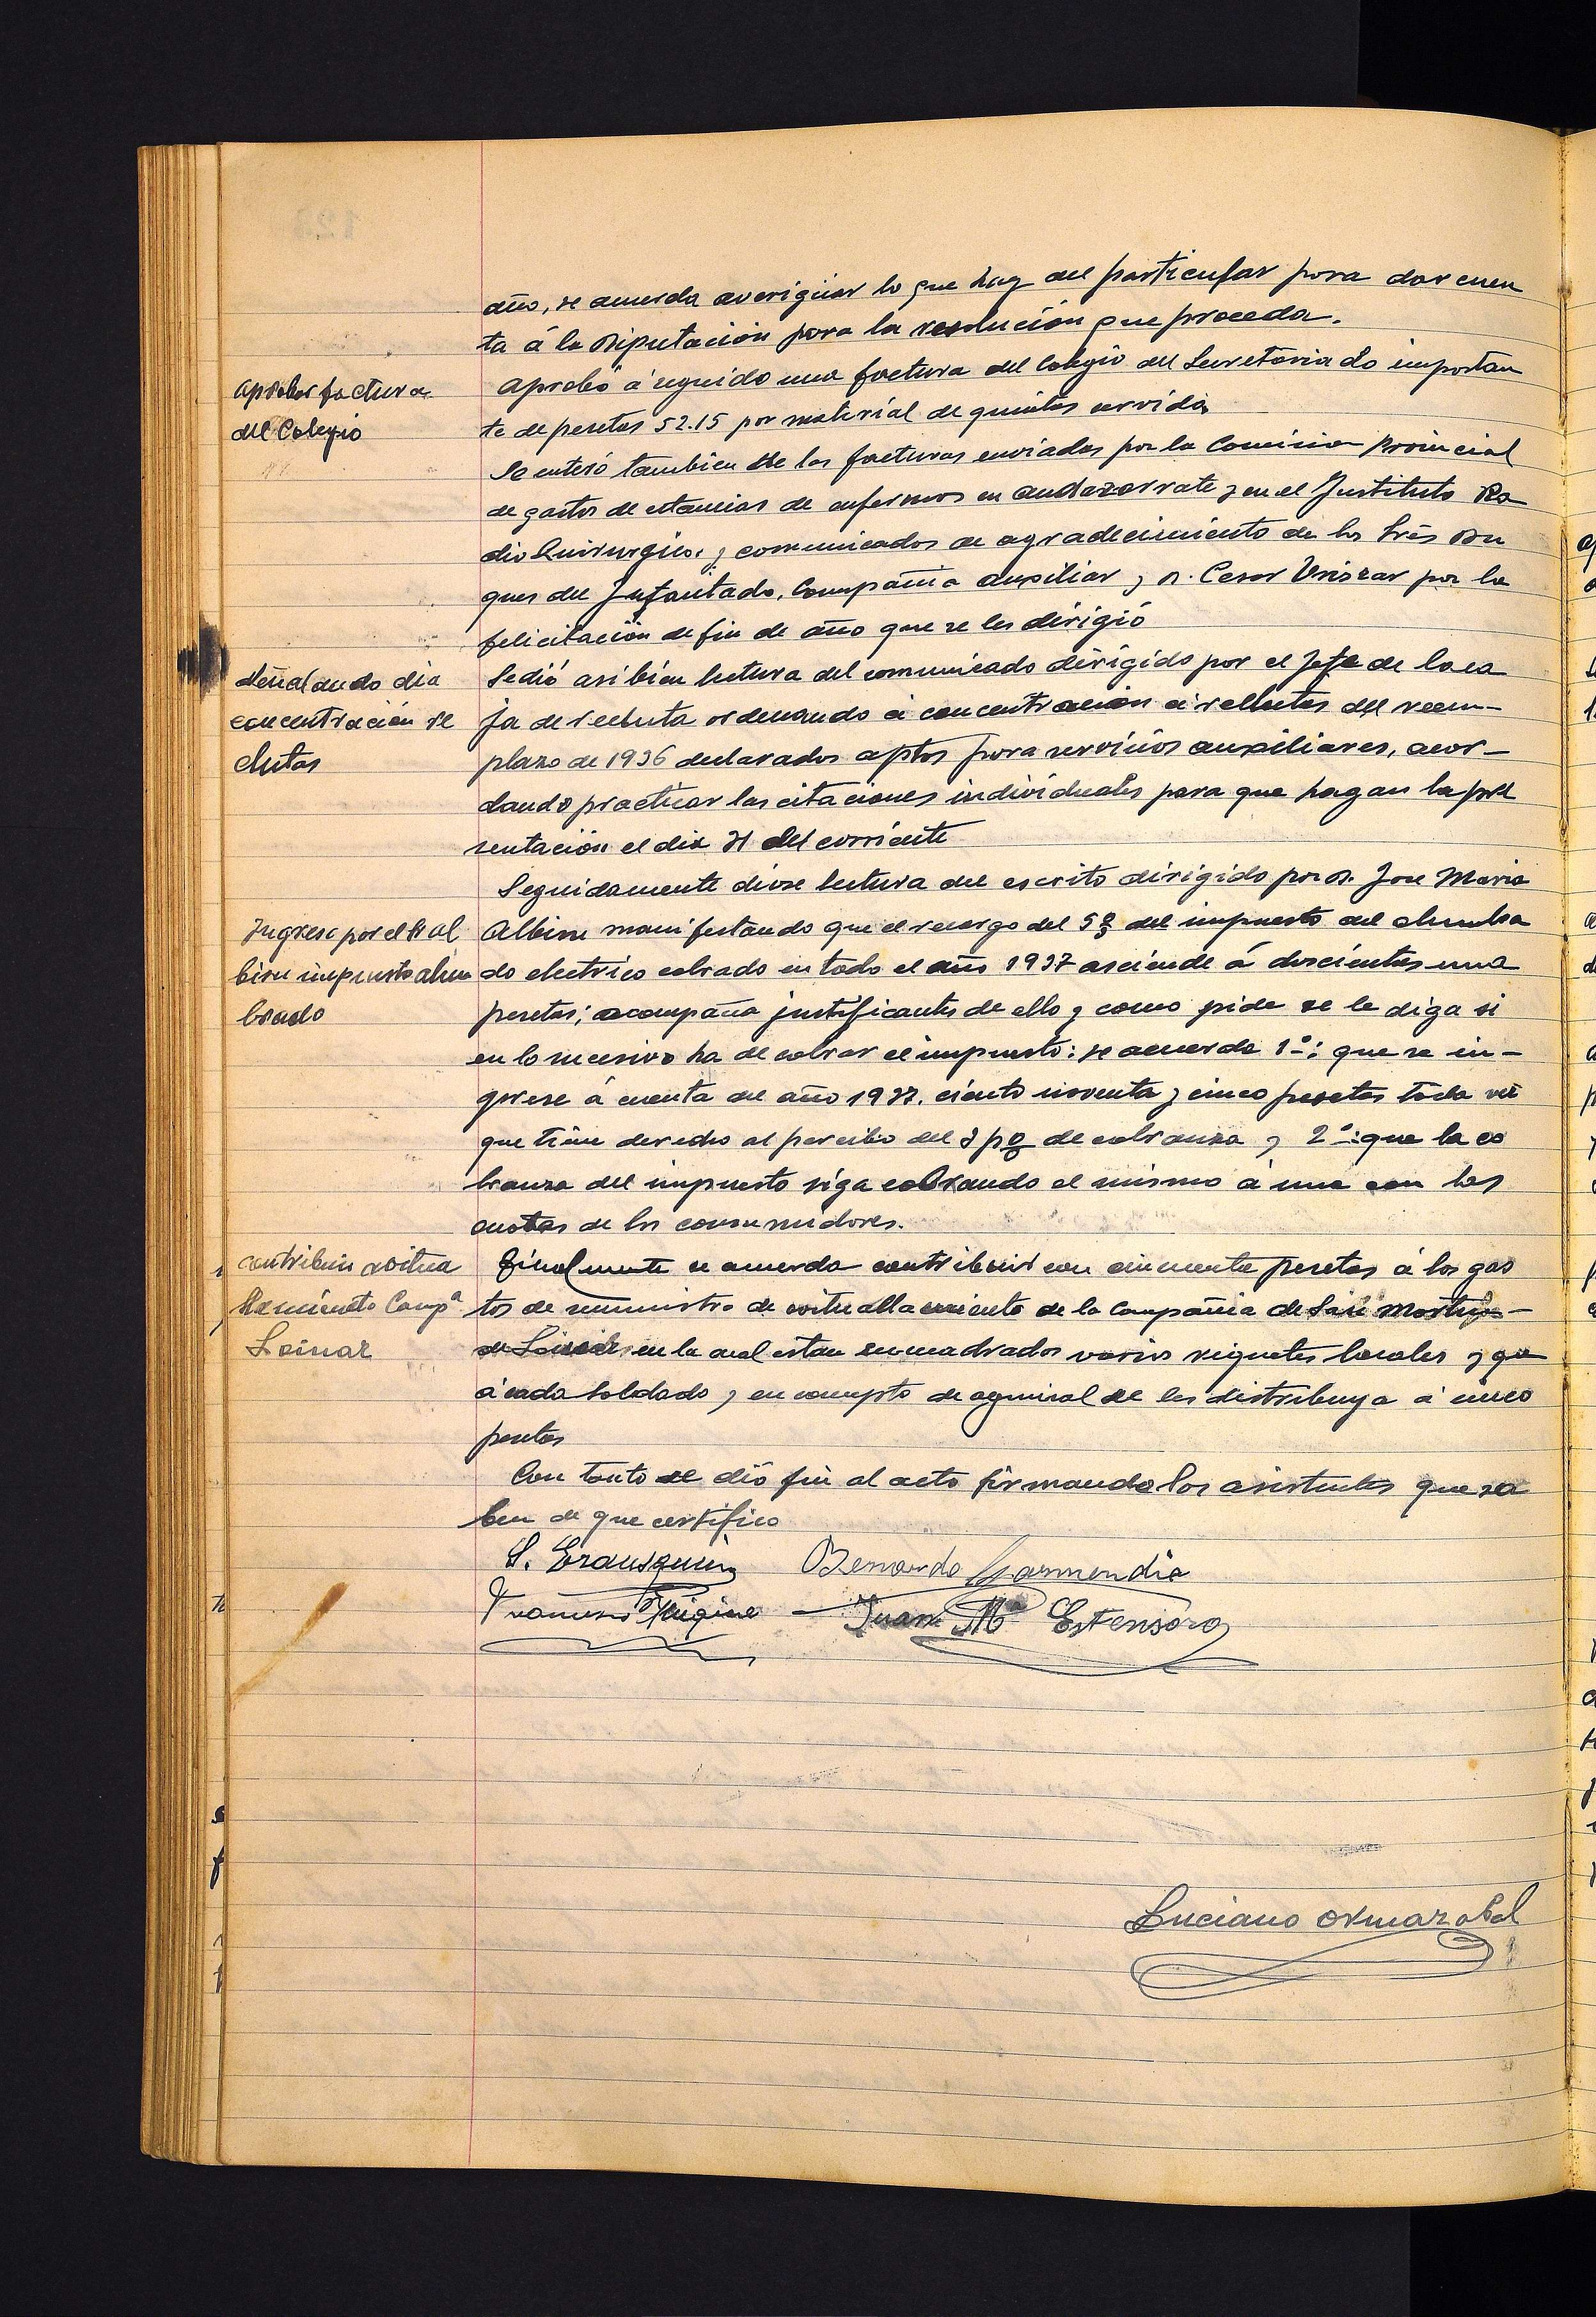 año, se acuerda averigüar lo que hay del particular para dar cuen
ta á la Diputación para la resolución que proceda.
aprobar factura
del Colegio
Aprobó a seguido una factura del Colegio del Secretariado importan
te de pesetas 52.15 por material de quintas servido
Se enteró tambien de las facturas enviadas por la Comision Provincial
de gastos de estancias de enfermos en Andazarrate y en el Instituto Ra
dio Quirurgico. y comunicados de agradecimiento de los Srés Du
ques del Infantado, Compañia Auxiliar y D. Cesar por la
felicitación de fin de año que se les dirigió
señalando dia
concentración re
clutas
Se dió asi bien lectura del comunicado dirigido por el Jefe de la ca
ja de recluta ordenando a concentración a reclutas del reem-
plazo de 1936 declarados aptos para servicios auxiliares, acor-
dando practicar las citaciones individuales para que hagan la pre
sentación el dia 21 del corriente
Seguidamente diose lectura del escrito dirigido por D. Jose Maria
Ingreso por el Sr Al
bisu impuesto alum
brado
Albisu manifestando que el recargo del 5% del impuesto del alumbra
do electrico cobrado en todo el año 1937 asciende á doscientas una
pesetas; acompaña justificantes de ello y como pide se le diga si
en lo sucesivo ha de cobrar el impuesto: se acuerda 1º: que se in-
grese á cuenta del año 1937. ciento noventa y cinco pesetas toda vez
que tiene derecho al percibo del 3 p% de cobranza y 2º: que la co
branza del impuesto siga cobrando el mismo a una con las
cuotas de los consumidores.
contribuir avitua
llamiento Compª
Loinaz
Finalmente se acuerda contribuir con cincuenta pesetas á los gas
tos de suministro de avituallamiento de la Compañia de San Martin-
de Loinaz en la cual estan encuadrados varios requetes locales y que
á cada soldado y en concepto de aguinal se les distribuya a cinco
pesetas
Con tanto se dió fin al acto firmando los asistentes que sa
ben de que certifico
S. Erausquin Bernardo Garmendia
Juan Mª Estensoro
Luciano Ormazabal